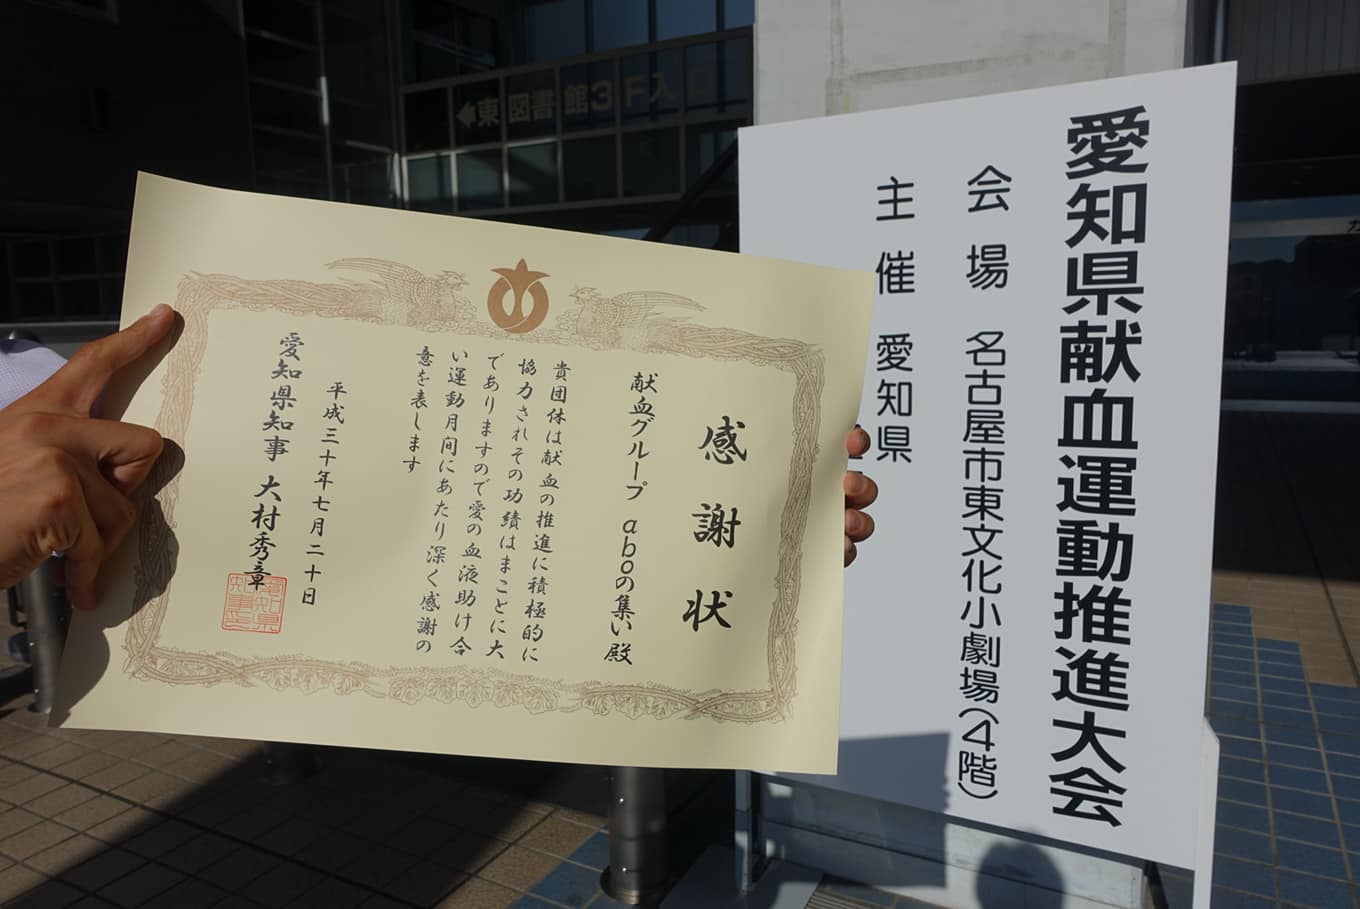 東図書館3F入口
感謝状
献血グループ aboの集い 殿
貴団体は献血の推進に積極的に
協力されその功績はまことに大
でありますので愛の血液助け合
い運動月间にあたり深く感謝の
意を表します
平成三十年七月二十日
愛知県知事 大村秀章
愛知県献血運動推進大会
会場 名古屋市東文化小劇場(4階)
主催 愛知県